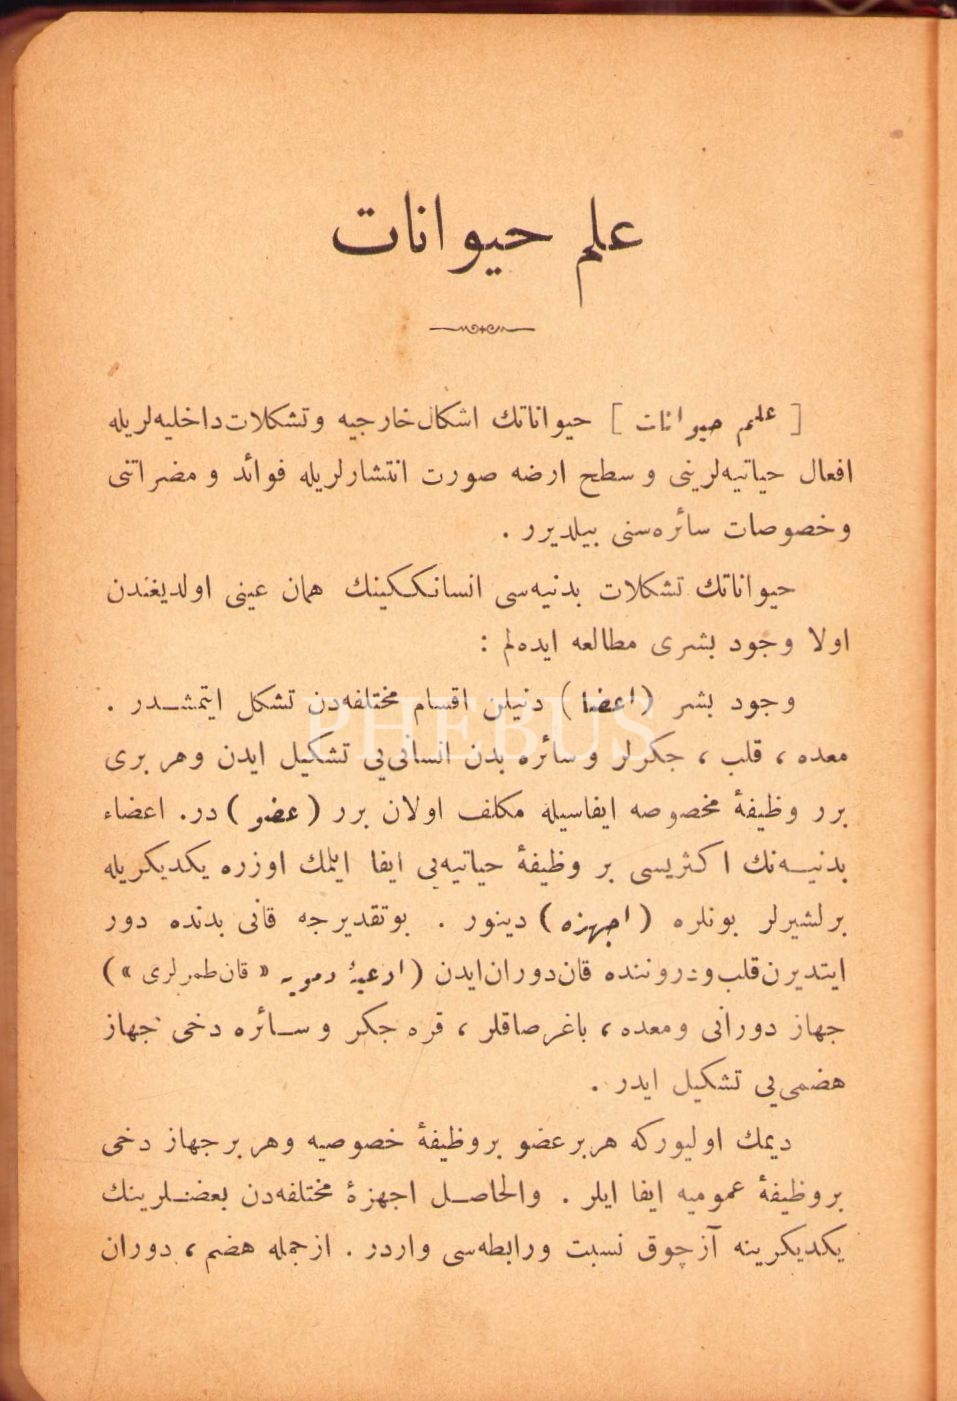 علم حیوانات
[ علم حیوانات ] حیواناتك اشكال خارجیه و تشكلات داخلیه‌لریله
افعال حیاتیه‌لرینی و سطح ارضه صورت انتشارلریله فوائد و مضراتنی
وخصوصات سائره‌سنی بیلدیرر .
حیواناتك تشكلات بدنیه‌سی انسانككینك همان عینی اولدیغندن
اولا وجود بشری مطالعه ایده‌لم :
وجود بشر ( اعضا ) دنیلن اقسام مختلفه‌دن تشكل ایتمشــدر .
معده ، قلب ، جكرلر وسائره بدن انسانی‌یی تشكیل ایدن وهر بری
برر وظیفهٔ مخصوصه ایفاسیله مكلف اولان برر ( عضو ) در. اعضاء
بدنیــه‌نك اكثریسی بر وظیفهٔ حیاتیه‌یی ایفا ایلمك اوزره یكدیكریله
برلشیرلر بونلره ( اجهزه ) دینور . بوتقدیرجه قانی بدنده دور
ایتدیرن قلب ودروننده قان دوران ایدن ( اوعیهٔ دمویه « قان طمرلری » )
جهاز دورانی ومعده ، باغرصاقلر ، قره جكر وســائره دخی جهاز
هضمی‌یی تشكیل ایدر .
دیمك اولیوركه هربرعضو بروظیفهٔ خصوصیه وهر برجهاز دخی
بروظیفهٔ عمومیه ایفا ایلر . والحاصــل اجهزهٔ مختلفه‌دن بعضــلرینك
یكدیكرینه آزچوق نسبت ورابطه‌سی واردر . ازجمله هضم ، دوران
PHEBUS